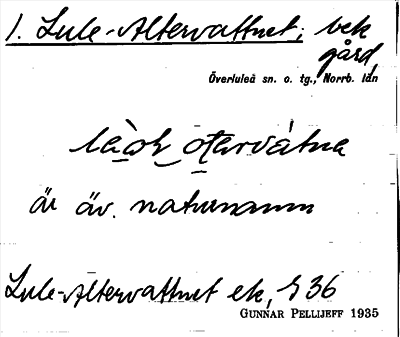 1. Lule-Altervattnet; bek
gård,
Överluleå sn. o. tg., Norrb. län
är äv. naturnamn
Lule-Altervattnet ek, § 36
GUNNAR PELLIJEFF 1935